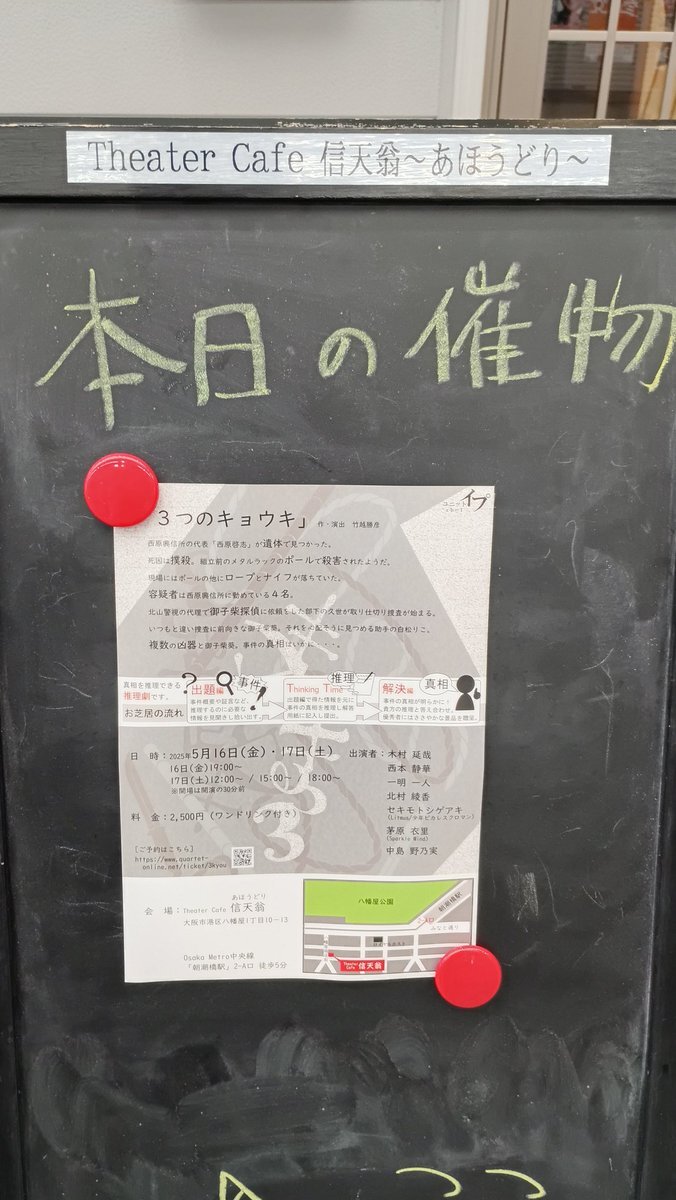 Theater Cafe 信天翁～あほうどり～
本日の催物
ユニットイプ
３つのキョウキ」 作・演出 竹越勝彦
西原興信所の代表「西原啓志」が遺体で見つかった。
死因は撲殺。組立前のメタルラックのポールで殺害されたようだ。
現場にはポールの他にロープとナイフが落ちていた。
容疑者は西原興信所に勤めている４名。
北山警視の代理で御子柴探偵に依頼をした部下の久世が取り仕切り捜査が始まる。
いつもと違い捜査に前向きな御子柴葵。それを心配そうに見つめる助手の白松りこ。
複数の凶器と御子柴葵。事件の真相はいかに・・・。
真相を推理できる
推理劇です。
お芝居の流れ
出題編 事件
事件概要や証言など、
推理するのに必要な
情報を見聞きし拾い出す。
推理
Thinking Time
出題編で得た情報を元に
事件の真相を推理し解答
用紙に記入し提出。
解決編 真相
事件の真相が明らかに！
貴方の推理と答え合わせ。
優秀者にはささやかな景品を贈呈。
日 時：2025年5月16日(金)・17日(土)
16日(金)19:00～
17日(土)12:00～ / 15:00～ / 18:00～
※開場は開演の30分前
料 金：2,500円（ワンドリンク付き）
[ご予約はこちら]
https://www.quartet-
online.net/ticket/3kyou
出演者：木村 延哉
西本 静華
一明 一人
北村 綾香
セキモトシゲアキ
(Litmus/少年ピカレスクロマン)
茅原 衣里
(Sparkle Wind)
中島 野乃実
あほうどり
会 場：Theater Cafe 信天翁
大阪市港区八幡屋1丁目10－13
Osaka Metro中央線
「朝潮橋駅」2-A口 徒歩5分
八幡屋公園
朝潮橋駅
2-A口
みなと通り
Theater Cafe 信天翁